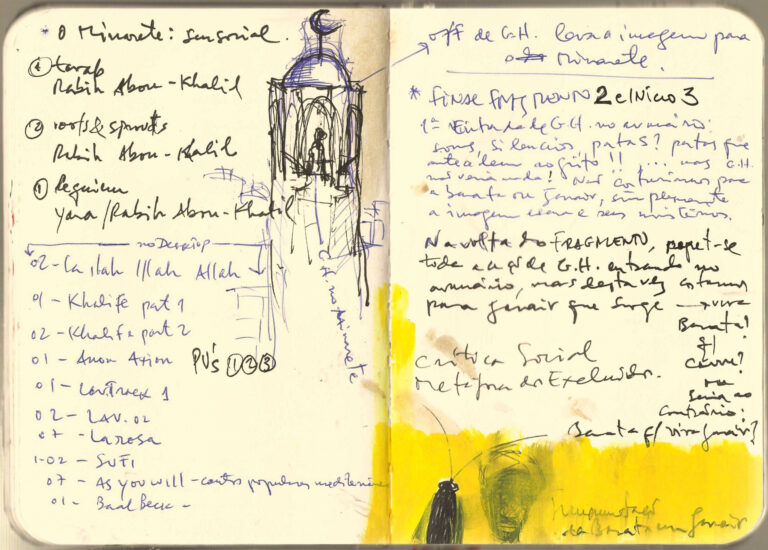 * O Minarete: sensorial.
④ tarab
Rabih Abou-Khalil
② roots & sprouts
Rabih Abou-Khalil
① Requiem
Yara / Rabih Abou-Khalil
no Desktop
02 - La ilah Illah Allah
01 - Khalife part 1
02 - Khalife part 2
01 - Anon
PV's ① ② ③
01 - 1
02 - LAV. 02
07 - Larosa
1-02 - SUFI
07 - As you will - populares
01 - Baal Beck -
G.H. no Minarete
off de G.H. leva a imagem para
o Minarete.
* FIM SE FRAGMENTO 2 e INÍCIO 3
1ª Entrada de G.H. no armário:
sons, silencios, patas? patas que
antecedem ao grito!! ... mas G.H.
não veria nada! Nas para
a barata ou Janair, simplesmente
a imagem e seus mistérios.
Na volta do FRAGMENTO, repet-se
toda a de G.H. entrando no
armário, mas desta vez
para Janair que surge → vira
Barata?
Carne?
ou
seria ao
contrário:
Barata q/ vira Janair?
Crítica Social
Metáfora do Excluído.
da Barata em Janair